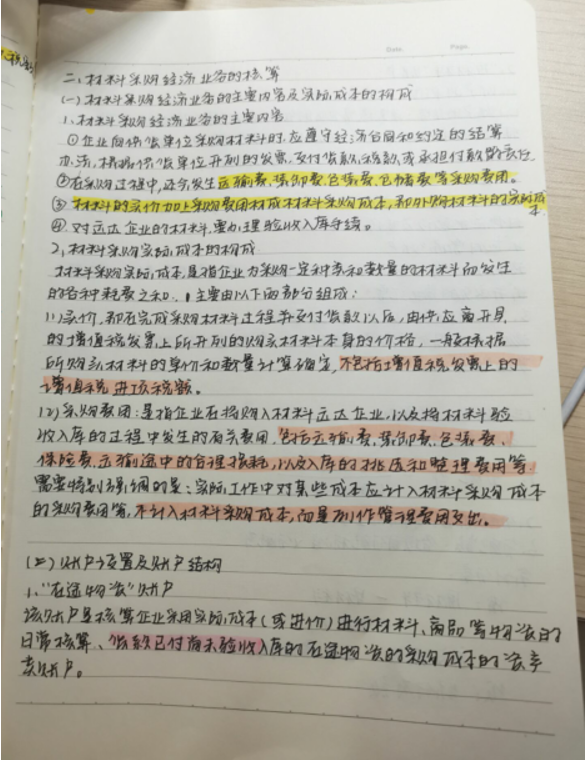 Date. Page.
二、材料采购经济业务的核算
(一)材料采购经济业务的主要内容及实际成本的构成
1、材料采购经济业务的主要内容
①企业向供货单位采购材料时,应遵守经济合同和约定的结算
办法,根据供货单位开列的发票,支付货款、税款,或承担付款的责任
②在采购过程中,还会发生运输费、装卸费、包装费、仓储费等采购费用。
③材料的买价加上采购费用构成材料采购成本,即外购材料的实际成
本
④对运达企业的材料,要办理验收入库手续。
2、材料采购实际成本的构成
材料采购实际成本,是指企业为采购一定种类和数量的材料而发生
的各种耗费之和。主要由以下两部分组成:
(1)买价,即在完成采购材料过程并支付货款以后,由供应商开具
的增值税发票上所开列的购买材料本身的价格,一般根据
所购买材料的单价和数量计算确定,不包括增值税发票上的
增值税进项税额。
(2)采购费用:是指企业在将购入材料运达企业,以及将材料验
收入库的过程中发生的有关费用,包括运输费、装卸费、包装费、
保险费、运输途中的合理损耗,以及入库的挑选和整理费用等
需要特别强调的是:实际工作中对某些成本应计入材料采购成本
的采购费用等,不计入材料采购成本,而是列作管理费用支出。
(二)账户设置及账户结构
1、"在途物资"账户
该账户是核算企业采用实际成本(或进价)进行材料、商品等物资的
日常核算、货款已付尚未验收入库的在途物资的采购成本的资产
类账户。